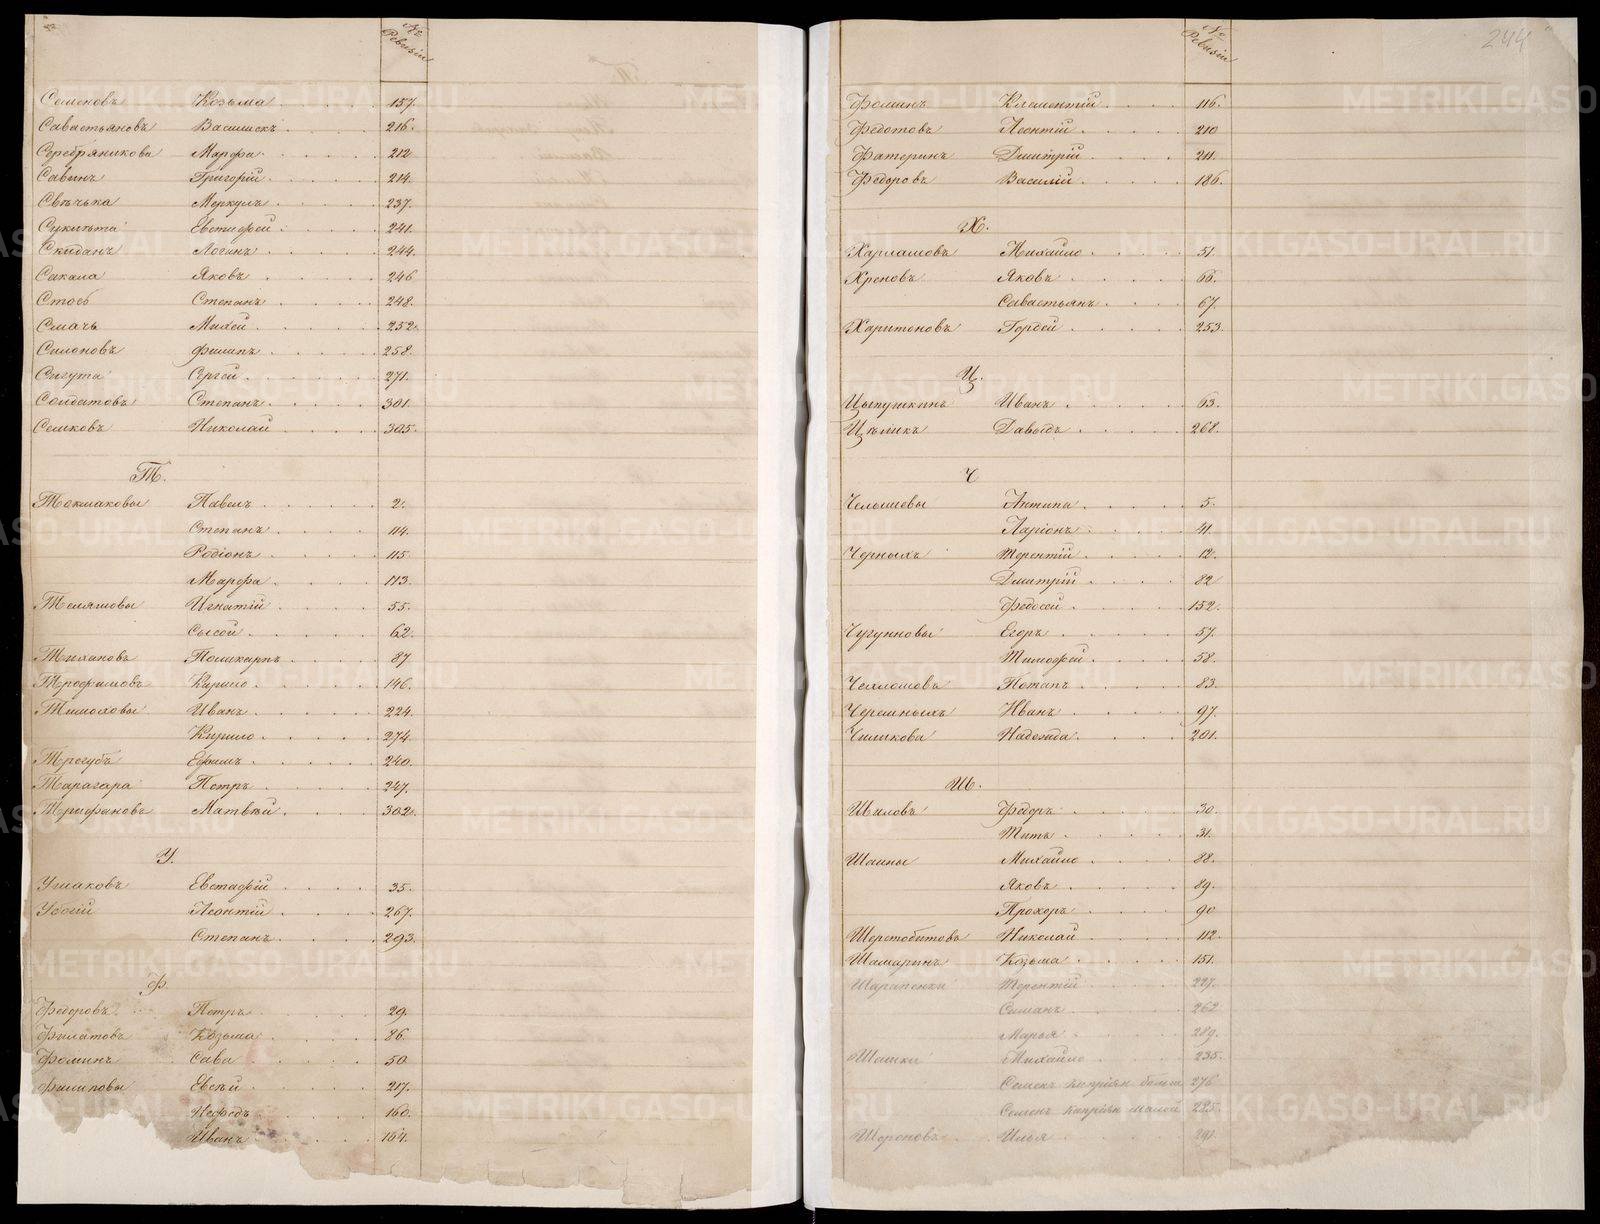 № Ревизіи
Семеновъ Козьма 157.
Савастьяновъ Василискъ 216.
Серебряникова Марфа 212
Савинъ Григорій 214.
Свѣчька Меркулъ 237.
Евстифей 241.
Скиданъ Логинъ 244.
Сакала Яковъ 246
Степанъ 248.
Смачь Михей 252.
Силоновъ Филипъ 258.
Сигута Сергей 271.
Солдатовъ Степанъ 301.
Семковъ Николай 305.
Т.
Токмаковы Павелъ 2.
Степанъ 114.
Родіонъ 115.
Марфа 113.
Теляшовы Игнатій 55.
Сысой 62.
Тихановъ Поликарпъ 87
Трофимовъ Кирило 146.
Тимоховы Иванъ 224.
Кирило 274.
Трегубъ Ефимъ 240.
Тарагара Петръ 247.
Трифановъ Матвѣй 302.
У.
Ушаковъ Евстафій 35.
Убогій Леонтій 267.
Степанъ 293.
Ф.
Федоровъ Петръ 29.
Филатовъ Козьма 86.
Фоминъ Сава 50
Филиповы Евсѣй 217.
Нефедъ 160.
Иванъ 164.
244
№ Ревизіи
Фоминъ Клементій 116.
Федотовъ Леонтій 210
Фатеринъ Дмитрій 211.
Федоровъ Василій 186.
Х.
Харламовъ Михайло 51.
Хреновъ Яковъ 66.
Савастьянъ 67.
Харитоновъ Гордей 253.
Ц.
Цыпушкинъ Иванъ 63.
Цѣликъ Давыдъ 268.
Ч
Челышевы Антипа 5.
Ларіонъ 41.
Черныхъ Терентій 12.
Дмитрій 82
Федосей 152.
Чугунновы Егоръ 57.
Тимофей 58.
Чехломовъ Потапъ 83.
Черемныхъ Иванъ 97.
Чиликова Надежда 201.
Ш.
Шиловъ Федоръ 30.
Титъ 31.
Шаины Михайло 88.
Яковъ 89.
Прохоръ 90
Шерстобитовъ Николай 112.
Шамаринъ Козьма 151.
Шарапенки Терентій 227.
Симанъ 262
Марья 289.
Шашки Михайло 235.
Семенъ Капріян болша 276
Семенъ Капріян малой 285.
Шороновъ Илья 291.
METRIKI.GASO-URAL.RU